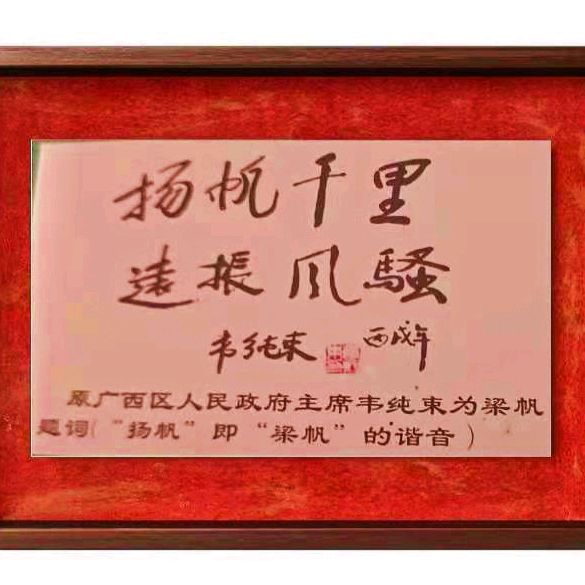 扬帆千里
遠振风騷
韦纯束 丙戌年
原广西区人民政府主席韦纯束为梁帆
题词(“扬帆”即“梁帆”的谐音)